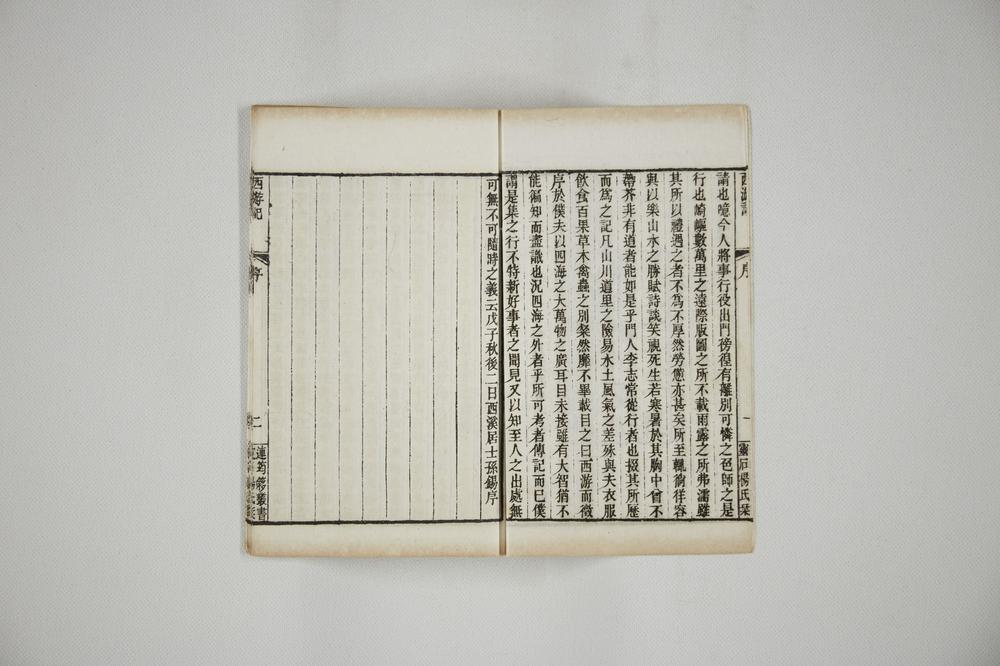 西游記 序 一 靈石楊氏栞
請也噫今人將事行役出門徬徨有離別可憐之色師之是
行也崎嶇數萬里之遠際版圖之所不載雨露之所弗濡雖
其所以禮遇之者不為不厚然勞憊亦甚矣所至輒徜徉容
與以樂山水之勝賦詩談笑視死生若寒暑於其胸中曾不
蔕芥非有道者能如是乎門人李志常從行者也掇其所歷
而為之記凡山川道里之險易水土風氣之差殊與夫衣服
飲食百果草木禽蟲之別粲然靡不畢載目之曰西游而徵
序於僕夫以四海之大萬物之廣耳目未接雖有大智猶不
能徧知而盡識也況四海之外者乎所可考者傳記而已僕
謂是集之行不特新好事者之聞見又以知至人之出處無
可無不可隨時之義云戊子秋後二日西溪居士孫錫序
西游記 序 二 連筠簃叢書